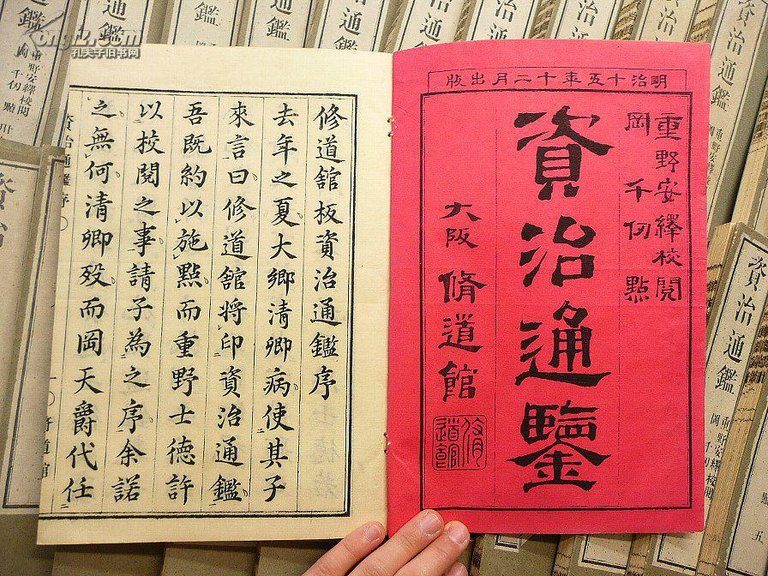 明治十五年十二月出版
重野安繹校閲
岡千仞點
資治通鑒
大阪 脩道館
脩道館
修道舘板資治通鑑序
去年之夏大卿清卿病使其子
來言曰修道舘將印資治通鑑
吾既約以施點而重野士德許
以校閲之事請子為之序余諾
之無何清卿歿而岡天爵代任
資治通鑑序
脩道館
資治通鑑
重野安繹校閲
岡千仞點
資治通鑑
重野安繹校閲
岡千仞點
五
Kongfz.com
孔夫子旧书网